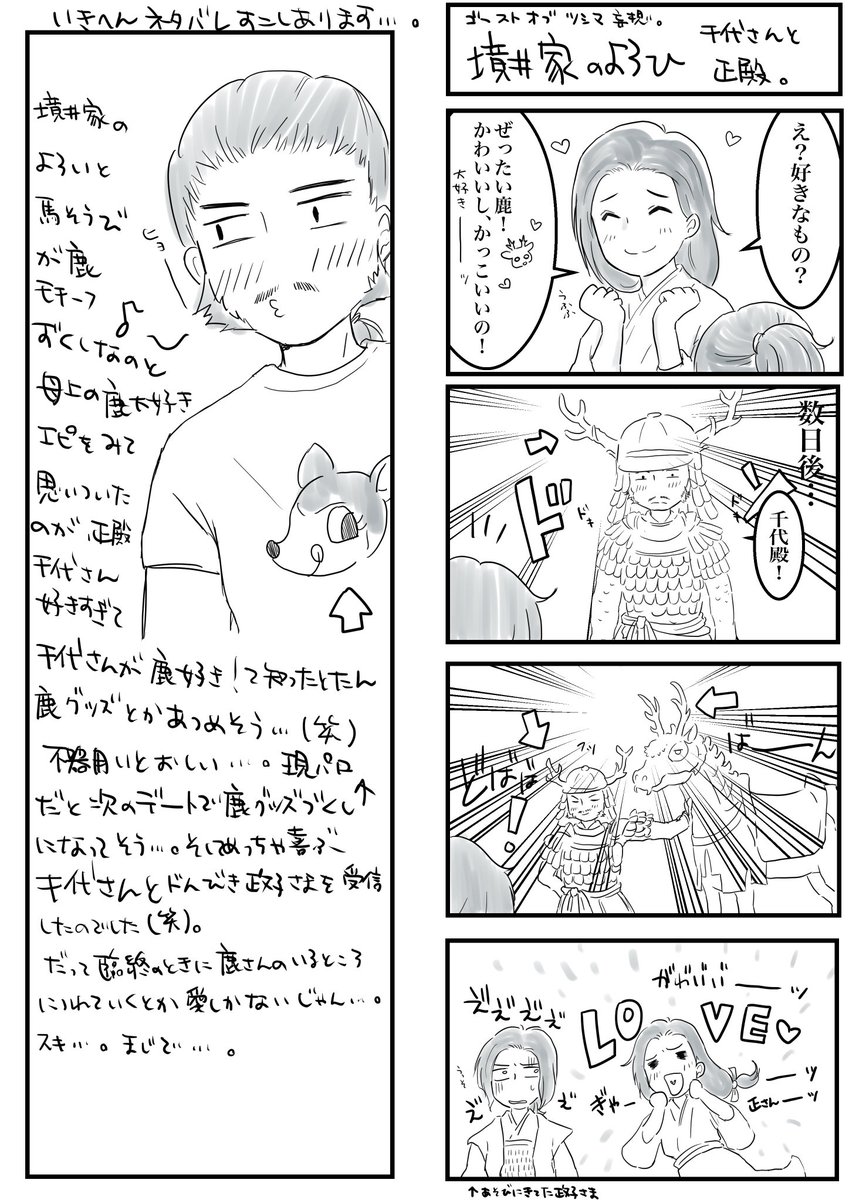 いきへんネタバレすこしあります…。
ゴーストオブツシマ妄想。
境井家のよろひ
千代さんと
正殿。
え?好きなもの?
ぜったい鹿!
かわいいし、かっこいいの!
大好きーーッ
うふふ
数日後…
千代殿!
ドキ
ドキ
ド
ばーーん
どばば
フッ
!
がわいいーーッ
LOVE
ええええ
ええ
うそぉ
ぎゃーーーッ
正さんーーッ
↑あそびにきてた政子さま
境井家の
よろいと
馬そうび
が鹿
モチーフ
ずくしなのと
母上の鹿大好き
エピをみて
思いついた
のが正殿
千代さん
好きすぎて
千代さんが鹿好き!て知ったとたん
鹿グッズとかあつめそう…(笑)
不器用いとおしい…。現パロ
だと次のデートで鹿グッズづくし↑
になってそう…。そしてめっちゃ喜ぶ
千代さんとドンびき政子さまを受信
したのでした(笑)。
だって臨終のときに鹿さんのいるところ
につれていくとか愛しかないじゃん…。
スキ…。まじで…。
ヒョー